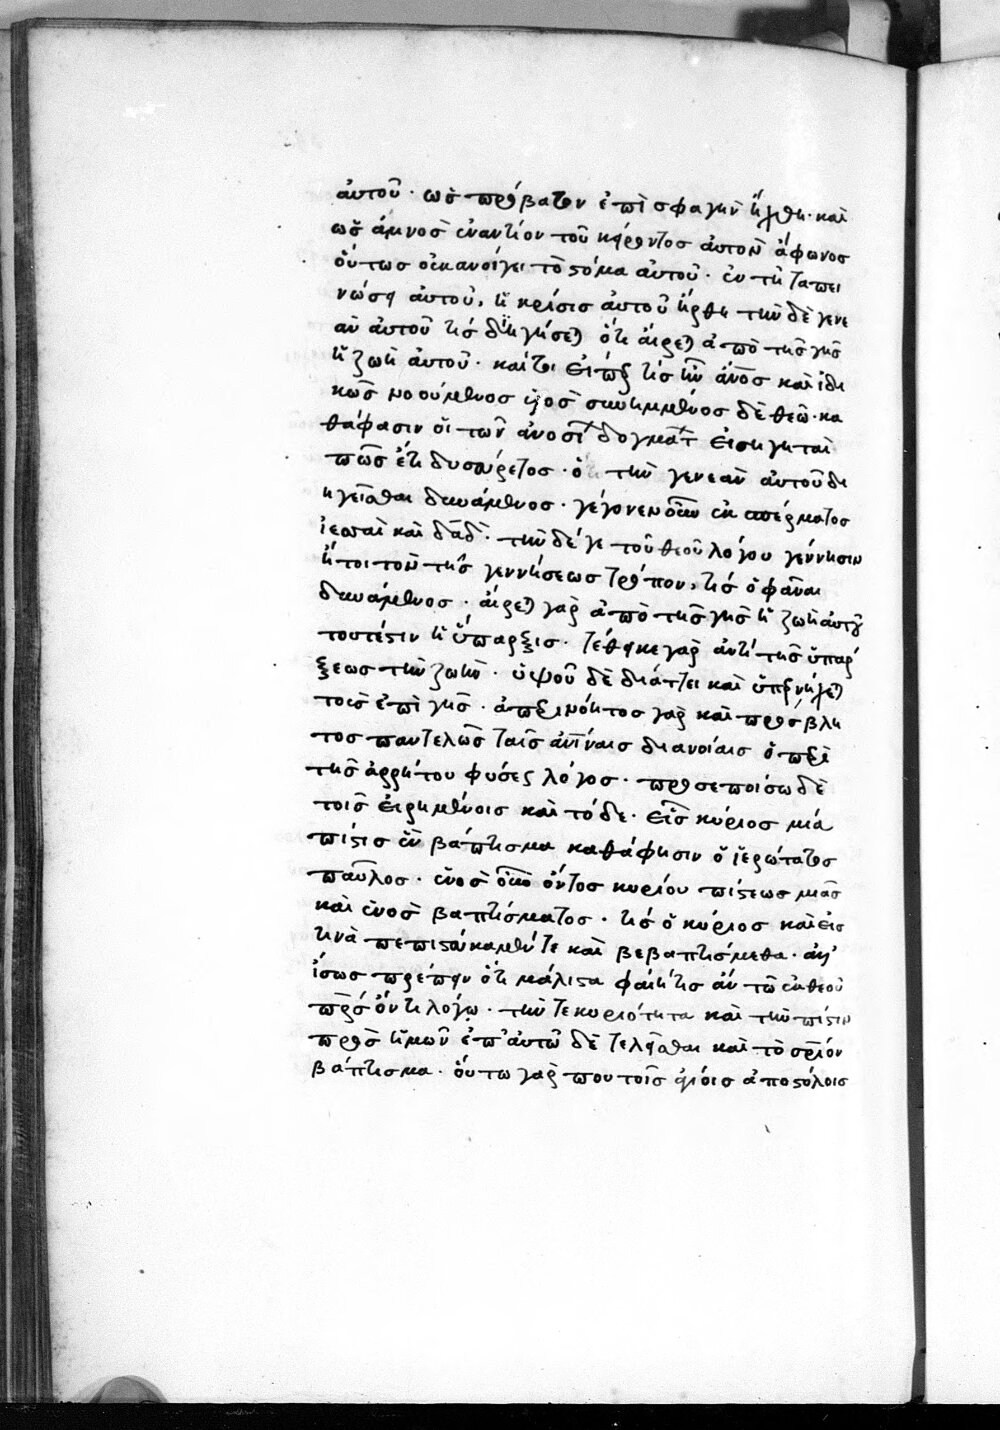 αὐτοῦ· ὡς πρόβατον ἐπὶ σφαγὴν ἤχθη· καὶ
ὡς ἀμνὸς ἐναντίον τοῦ κείροντος αὐτὸν ἄφωνος
οὕτως οὐκ ἀνοίγει τὸ στόμα αὐτοῦ· ἐν τῆ ταπει
νώσει αὐτοῦ, ἡ κρίσις αὐτοῦ ἤρθη τὴν δὲ γενε
ὰν αὐτοῦ τίς διηγήσεται ὅτι αἴρεται ἀπὸ τῆς γῆς
ἡ ζωὴ αὐτοῦ· καίτοι εἴπερ τις ἦν ἄνος καὶ ἰδι
κῶς νοούμενος υἱὸς συνημμένος δὲ θεῶ· κα
θά φασιν οἱ τῶν ἀνοσίων δογμάτων εἰσηγηταὶ
πῶς ἔτι δυσεύρετος· ὁ τὴν γενεὰν αὐτοῦ δι
ηγεῖσθαι δυνάμενος· γέγονεν οὖν ἐκ σπέρματος
ἰεσσαὶ καὶ δαδ· τὴν δέ γε τοῦ θεοῦ λόγου γέννησιν
ἤτοι τὸν τῆς γεννήσεως τρόπον, τίς ὁ φᾶναι
δυνάμενος· αἴρεται γὰρ ἀπὸ τῆς γῆς ἡ ζωὴ αὐτοῦ
τουτέστιν ἡ ὕπαρξις· τέθεικε γὰρ ἀντὶ τῆς ὑπάρ
ξεως τὴν ζωὴν· ὑψοῦ δὲ διάττει καὶ ὑπερνήχεται
τοὺς ἐπὶ γῆς· ἀπερινόητος γὰρ καὶ ἀπρόσβλη
τος παντελῶς ταῖς ἀνίναις διανοίαις ὁ περὶ
τῆς ἀρρήτου φύσεως λόγος· προσεποίσω δὲ
τοῖς εἰρημένοις καὶ τόδε· εἷς κύριος μία
πίστις ἓν βάπτισμα καθά φησιν ὁ ἱερώτατος
παῦλος· ἑνὸς οὖν ὄντος κυρίου πίστεως μιᾶς
καὶ ἑνὸς βαπτίσματος· τίς ὁ κύριος καὶ εἰς
τινὰ πεπιστεύκαμέν τε καὶ βεβαπτίσμεθα· ἀλλ'
ἴσως πρέπειν ὅτι μάλιστα φαίη τις ἂν τῶ ἐκ θεοῦ
πρς ὄντι λόγω· τήν τε κυριότητα καὶ τὴν πίστιν
πρὸς ἡμῶν ἐπ' αὐτῶ δὲ τελεῖσθαι καὶ τὸ σριον
βάπτισμα· οὕτω γάρ που τοῖς ἁγίοις ἀποστόλοις